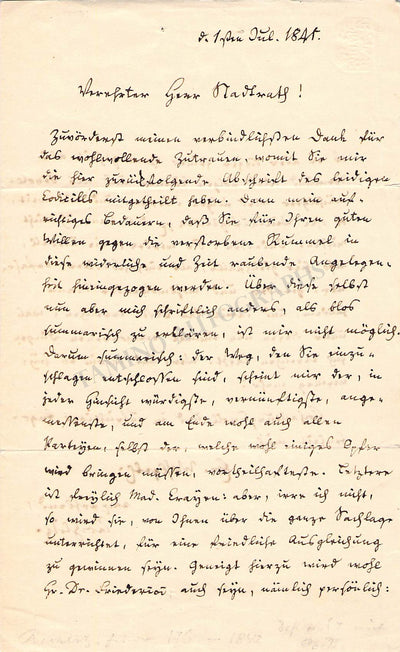 d. 1sten Jul. 1841.
Verehrter Herr Stadtrath!
Zuvörderst meinen verbindlichsten Dank für
das wohlwollende Zutrauen, womit Sie mir
die hier zurückfolgende Abschrift des leidigen
Codicills mitgetheilt haben. Dann mein auf-
richtiges Bedauern, daß Sie für Ihren guten
Willen gegen die verstorbene Rummel in
diese widerliche und Zeit raubende Angelegen-
heit hineingezogen werden. Über diese selbst
nun aber mich schriftlich anders, als blos
summarisch zu erklären, ist mir nicht möglich.
Darum summarisch: der Weg, den Sie einzu-
schlagen entschlossen sind, scheint mir der, in
jeder Hinsicht würdigste, vernünftigste, ange-
messenste, und am Ende wohl auch allen
Partheyen, selbst der, welche wohl einiges Opfer
wird bringen müssen, vortheilhafteste. Letztere
ist freylich Mad. aber, irre ich nicht,
so wird sie, von Ihnen über die ganze Sachlage
unterrichtet, für eine friedliche Ausgleichung
zu gewinnen seyn. Geneigt hierzu wird wohl
Hr. Dr. Friederici auch seyn, nämlich persönlich: